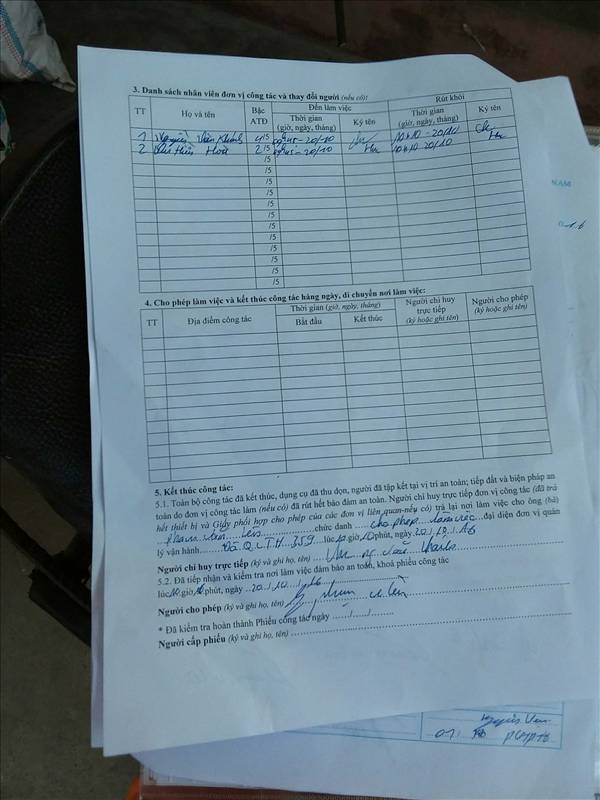 3. Danh sách nhân viên đơn vị công tác và thay đổi người (nếu có):
TT Họ và tên Bậc ATĐ Đến làm việc Rút khỏi
Thời gian (giờ, ngày, tháng) Ký tên Thời gian (giờ, ngày, tháng) Ký tên
1 Nguyễn Văn Khánh 4/5 - 20/10 10h10 - 20/10
2 Hoà 2/5 - 20/10 10h10 20/10
/5
/5
/5
/5
/5
/5
/5
/5
/5
/5
/5
/5
4. Cho phép làm việc và kết thúc công tác hàng ngày, di chuyển nơi làm việc:
TT Địa điểm công tác Thời gian (giờ, ngày, tháng) Người chỉ huy trực tiếp (ký hoặc ghi tên) Người cho phép (ký hoặc ghi tên)
Bắt đầu Kết thúc
5. Kết thúc công tác:
5.1. Toàn bộ công tác đã kết thúc, dụng cụ đã thu dọn, người đã tập kết tại vị trí an toàn; tiếp đất và biện pháp an
toàn do đơn vị công tác làm (nếu có) đã rút hết bảo đảm an toàn. Người chỉ huy trực tiếp đơn vị công tác (đã trả
hết thiết bị và Giấy phối hợp cho phép của các đơn vị liên quan-nếu có) trả lại nơi làm việc cho ông (bà)
Phạm văn chức danh cho phép làm việc đại diện đơn vị quản
lý vận hành Đội QLTH 359 lúc 10 giờ, 10 phút, ngày 20/10/16
Người chỉ huy trực tiếp (ký và ghi họ, tên)
5.2. Đã tiếp nhận và kiểm tra nơi làm việc đảm bảo an toàn, khoá phiếu công tác
lúc 10 giờ phút, ngày 20/10/16
Người cho phép (ký và ghi họ, tên)
* Đã kiểm tra hoàn thành Phiếu công tác ngày ....../....../......
Người cấp phiếu (ký và ghi họ, tên)
NAM
Nguyễn Văn